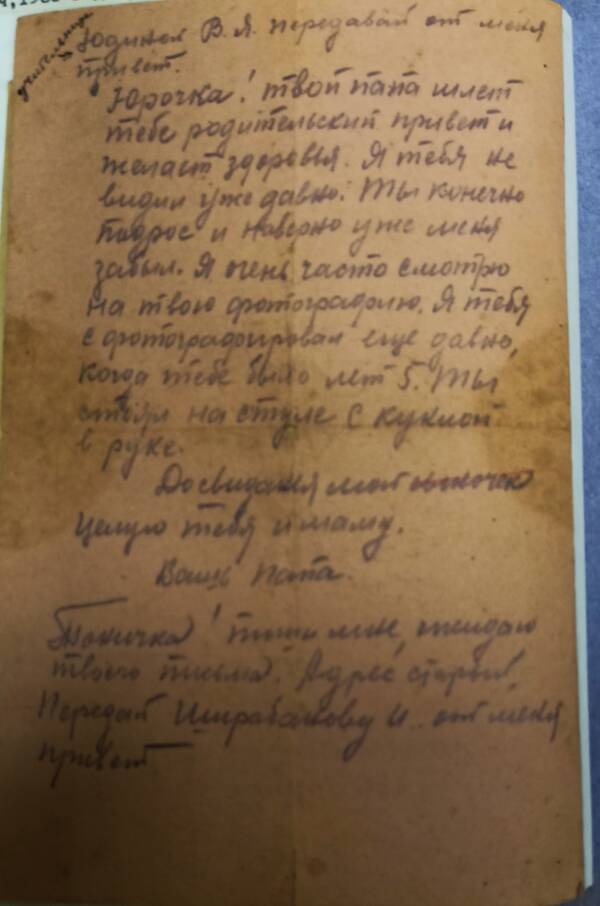 учительница
Юдиной В.Я. передавай от меня
привет.
Юрочка! твой папа шлет
тебе родительский привет и
желает здоровья. Я тебя не
видил уже давно. Ты конечно
подрос и наверно уже меня
забыл. Я очень часто смотрю
на твою фотографию. Я тебя
сфотографировал еще давно,
когда тебе было лет 5. Ты
стоял на стуле с куклой
в руке.
Досвидания мой сыночек
целую тебя и маму.
Ваш папа.
пиши мне, ожидаю
твоего письма. Адрес старый.
Передай от меня
привет